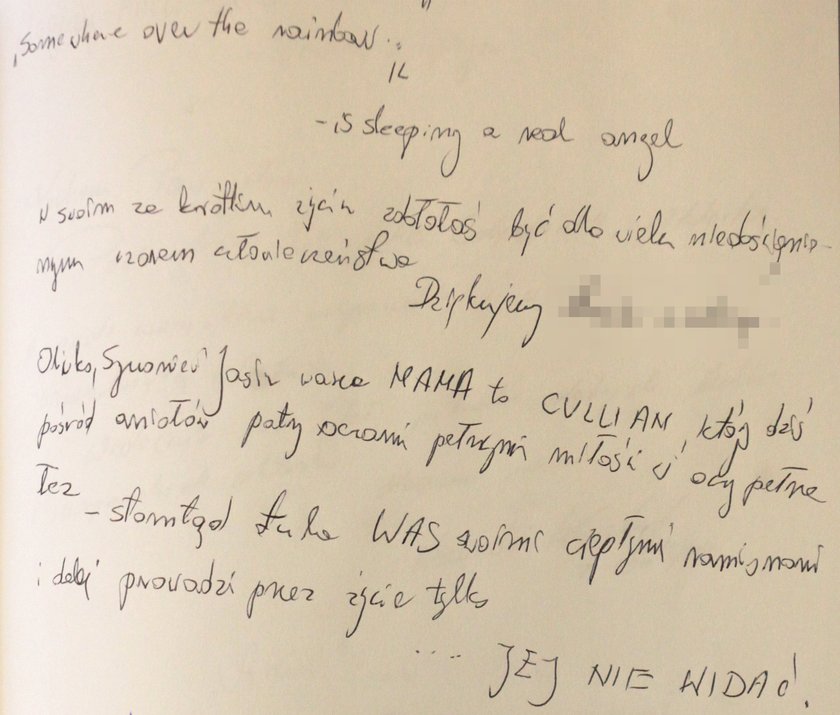 "Somewhere over the rainbow..
- is sleeping a real angel
W swoim za krótkim życiu zdołałaś być dla wielu niedoścignio-
nym wzorem człowieczeństwa
Dziękujemy
Oliwko, Szymonie i Jasiu wasza MAMA to CULLIAN, który dziś
pośród aniołów patrzy oczami pełnymi miłości i oczy pełne
łez
- stamtąd tula WAS swoimi ciepłymi ramionami
i dalej prowadzi przez życie tylko
.... JEJ NIE WIDAĆ.